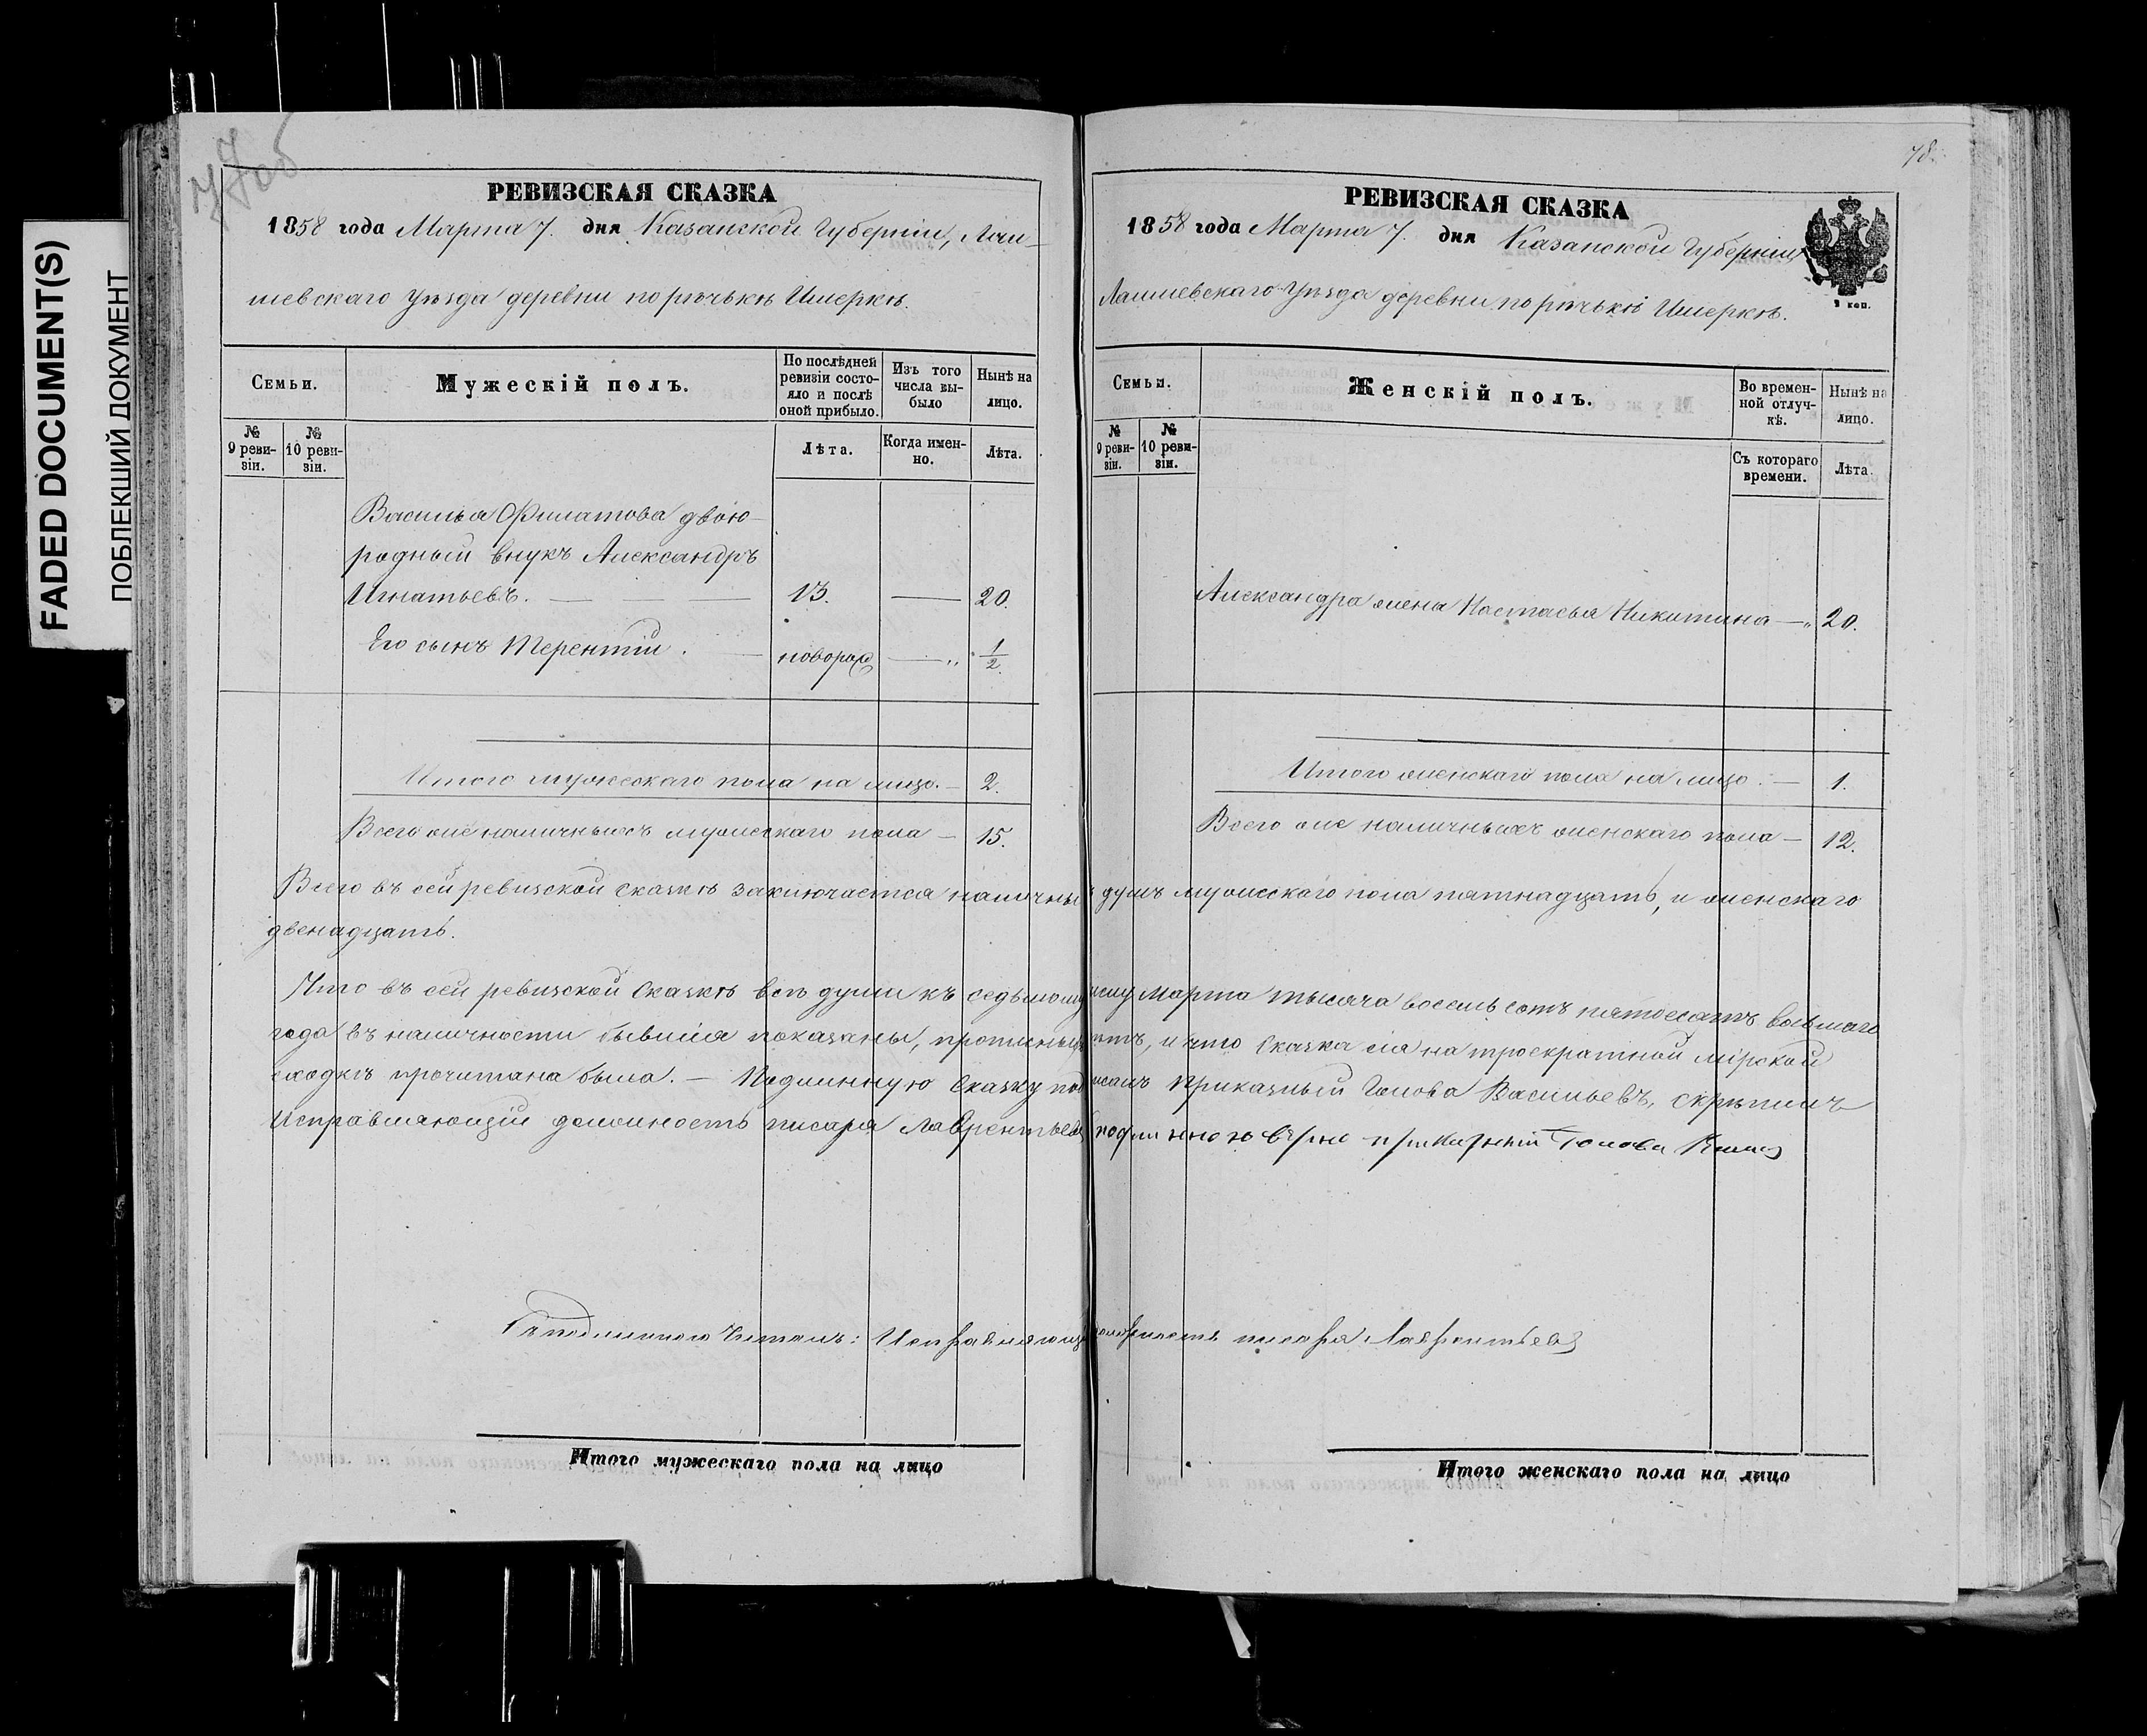 FADED DOCUMENT(S)
ПОБЛЕКШИЙ ДОКУМЕНТ
РЕВИЗСКАЯ СКАЗКА
1858 года Марта 7. дня Казанской Губерніи, Лаи-
шевскаго Уѣзда деревни по рѣчькѣ Ишеркѣ.
Семьи.
Мужескій полъ.
По послѣдней ревизіи состо-
яло и послѣ
оной прибыло.
Изъ того
числа вы-
было
Нынѣ на
лицо.
№
9 реви-
зіи.
№
10 реви-
зіи.
Лѣта.
Когда имен-
но.
Лѣта.
Василья Филатова двою-
родный внукъ Александръ
Игнатьевъ. 13. — 20.
Его сынъ Терентій. новорож — „ 1/2
Итого мужескаго пола на лицо. — 2.
Всего же наличныхъ мужескаго пола — 15.
РЕВИЗСКАЯ СКАЗКА
78.
1858 года Марта 7. дня Казанской Губерніи
Лаишевскаго Уѣзда деревни по рѣчькѣ Ишеркѣ.
Семьи.
Женскій полъ.
Во времен-
ной отлуч-
кѣ.
Нынѣ на
лицо.
№
9 реви-
зіи.
№
10 реви-
зіи.
Съ котораго
времени.
Лѣта.
Александра жена Настасья Никитина — „ 20.
Итого женскаго пола на лицо. — 1.
Всего же наличныхъ женскаго пола — 12.
Всего въ сей ревизской сказкѣ заключается наличны душъ мужескаго пола пятнадцать, и женскаго
двенадцать.
Что въ сей ревизской сказкѣ всѣ души къ седьмому Марта тысяча восемь сотъ пятдесятъ восьмаго
года въ наличности бывшія показаны, и что сказка сія на троекратной мірской
сходкѣ прочитана была. — Подлинную сказку под исалъ Приказный Голова Васильевъ, скрѣпилъ
Исправляющій должность писаря Лаврентьевъ подлинною вѣрно приказный Голова
Съ подлиннымъ читалъ: Исправляющ должность писаря Лаврентьевъ
Итого мужескаго пола на лицо
Итого женскаго пола на лицо